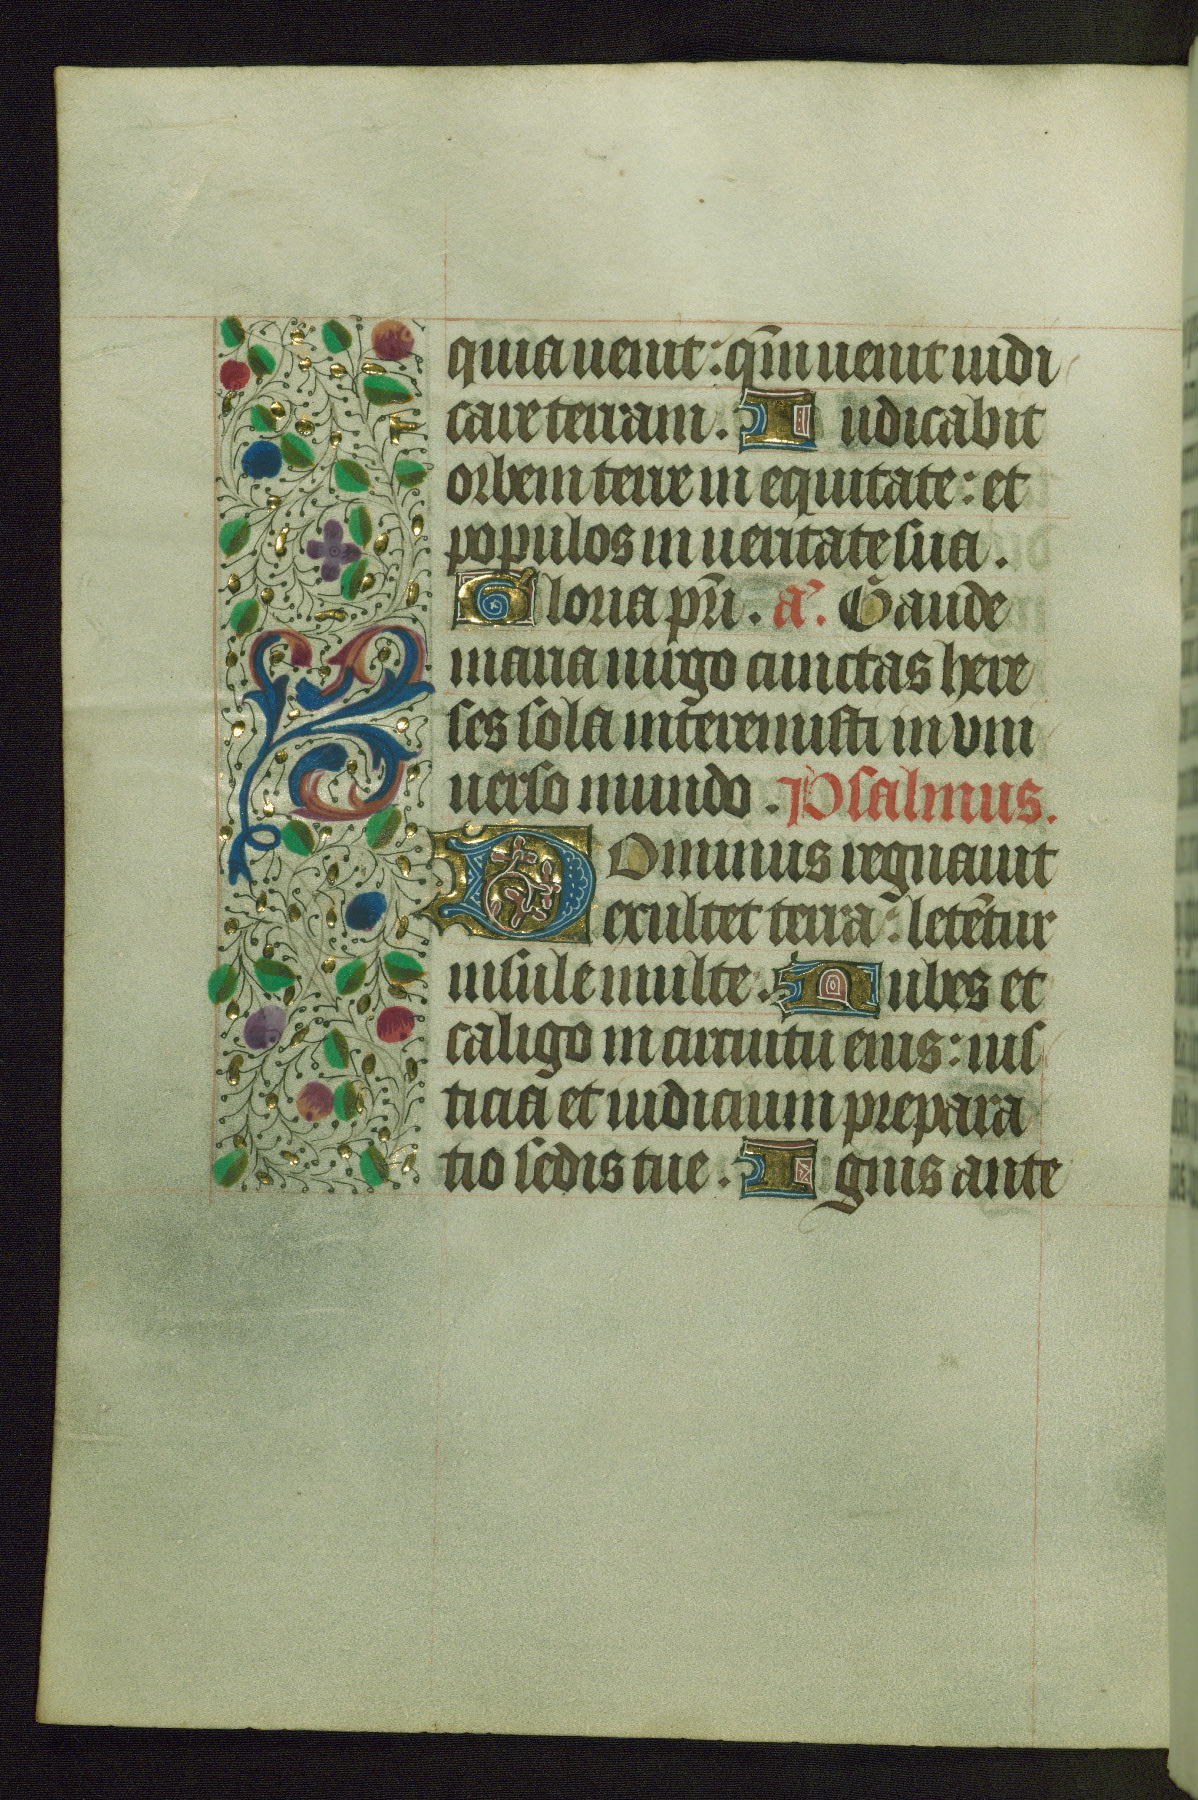 quia uenit: qm̄ uenit iudi
care terram. Iudicabit
orbem terre in equitate: et
populos in ueritate sua.
Gloria pr̄i. a͞. Gaude
maria uirgo cunctas here
ses sola int̄eremisti in vni
uerso mundo. Psalmus.
DOminus regnauit
exultet terra: letēntur
insule multe. Nubes et
caligo in circuitu eius: ius
ticia et iudicium prepara
tio sedis tue. Ignis ante